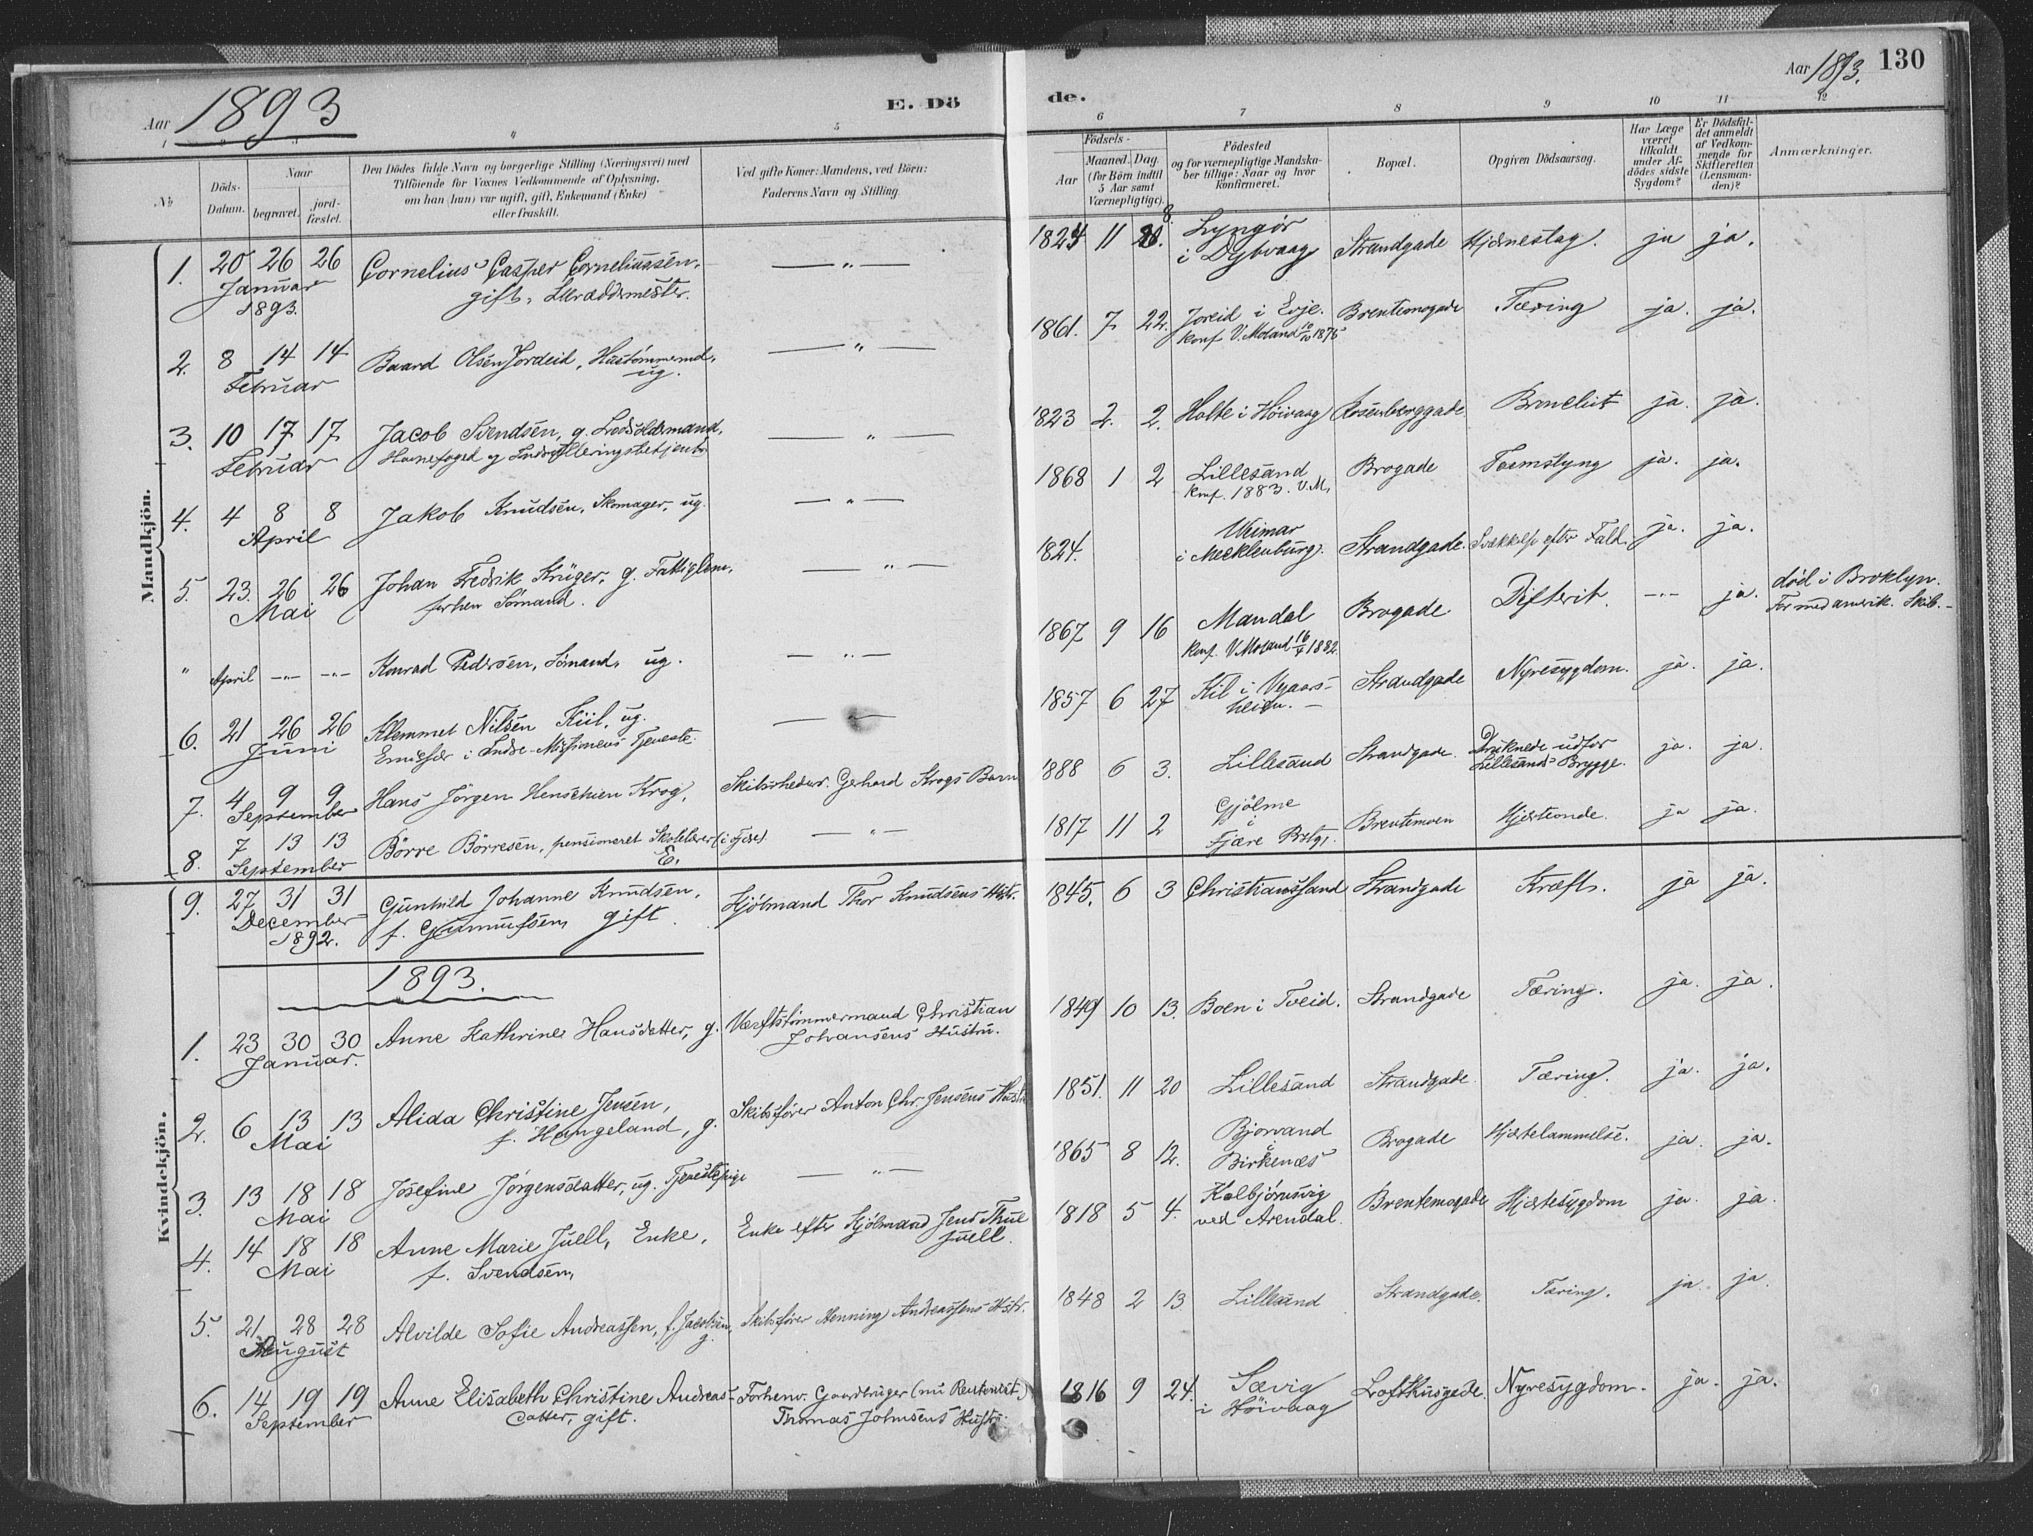 Aar 1893
E. Dö
de.
Aar 1893. 130
1 2 3 4 5
6 7 8 9 10 11 12
No
Döds-
Datum.
Naar
begravet.
jord-
fæstet.
Den Dödes fulde Navn og borgerlige Stilling (Næringsvei) med
Tilföiende for Voxnes Vedkommende af Oplysning,
om han (hun) var ugift, gift, Enkemand (Enke)
eller fraskilt.
Ved gifte Koner: Mandens, ved Börn:
Faderens Navn og Stilling.
Födsels-
Aar
Maaned. Dag.
(for Börn indtil
5 Aar samt
Værnepligtige).
Födested
og for værnepligtige Mandska-
ber tillige: Naar og hvor
konfirmeret.
Bopæl.
Opgiven Dödsaarsag.
Har Læge
været
tilkaldt
under Af-
dödes sidste
Sygdom?
Er Dödsfal-
det anmeldt
af Vedkom-
mende for
Skifteretten
(Lensman-
den)?
Anmærkninger.
Mandkjön.
1. 20 26 26 Cornelius Casper Corneliussen, — " —
Januar gift,
1893.
1824 11 8. Lyngör Strandgade Hjernestag. ja ja.
i Dybvaag
2. 8 14 14 Baard Olsen Jordeid, — " —
Februar ug.
1861. 7 22. i Evje. Brentemogade Tæring ja. ja.
Konf V.Moland 1876
3. 10 17 17 Jacob Svendsen, g. — " —
Februar Havnefoged og
1823 2. 2. Holte i Höivaag Rosenberggade ja. ja.
4. 4 8 8 Jakob Knudsen, Skomager, ug. — " —
April
1868 1 2 Lillesand Brogade ja. ja.
Konf. 1883. V.M.
5. 23. 26 26 Johan Fredrik Krüger, g. Fattiglem, — " —
Mai forhen Sömand.
1824. Weimar Strandgade. efter Fald. ja. ja.
i Mecklenburg.
" April —"— —"— Konrad Pedersen, Sömand, ug. — " —
1867 9 16 Mandal Brogade Difterit. —"— ja. död i Broklyn.
Konf. V.Moland 1882 For med amerik. Skib.
6. 21 26 26 Klemmet Nilsen Kiil, ug. — " —
Juni i Indre-Missionens Tjeneste.
1857 6 27 Kil i Strandgade Nyresygdom. ja. ja.
7. 4 9 9 Hans Jörgen Henschien Krog, Skibsrheder. Gerhard Krogs Barn
September
1888 6 3. Lillesand Strandgade. Druknede udfor ja. ja.
Lillesands Brygge.
8. 7 13 13 Börre Börresen, pensioneret Skolelærer (i Fjære) — " —
September E.
1817 11 2 Gjölme Brentemoen ja ja.
i
Fjære Prstgj.
Kvindekjön.
9. 27 31 31 Gunhild Johanne Knudsen, Hjölmand Thor Knudsens Hstr.
December f. gift
1892.
1845. 6 3 Christianssand Strandgade Kræft. ja ja.
1893.
1. 23 30 30 Anne Kathrine Hansdatter, g. Værftstömmermand Christian
Januar. Johansens Hustru.
1849 10 13. Boen i Tveid. Strandgade Tæring. ja. ja.
2. 6 13 13 Alida Christine Jensen, Skibsförer Anton Chr. Jensens Hustr
Mai f. Hangeland, g.
1851. 11 20 Lillesand Strandgade. Tæring. ja. ja.
3. 13 18 18 Josefine Jörgensdatter, ug. Tjenestepige — " —
Mai
1865 8 12. Bjorvand Brogade Hjertelammelse. ja. ja.
i
Birkenæs
4. 14 18 18 Anne Marie Juell, Enke, Enke efter Hjölmand Jens Thue
Mai f. Svendsen, Juell.
1818 5 4. Kolbjörnsvig Brentemogade Hjertesygdom ja. ja.
ved Arendal.
5. 21 28 28 Alvilde Sofie Andreassen, f. Jacobsen, Skibsförer Henning Andreassens Hstr.
August g.
1848 2 13 Lillesand Strandgade. Tæring. ja. ja.
6. 14 19 19 Anne Elisabeth Christine Andreas- Forhenv. Gaardbruger (nu Rentenist)
September datter, gift. Thomas Johnsens Hustr.
1816 9 24. Sævig Lofthusgade. Nyresygdom. ja. ja.
i Höivaag